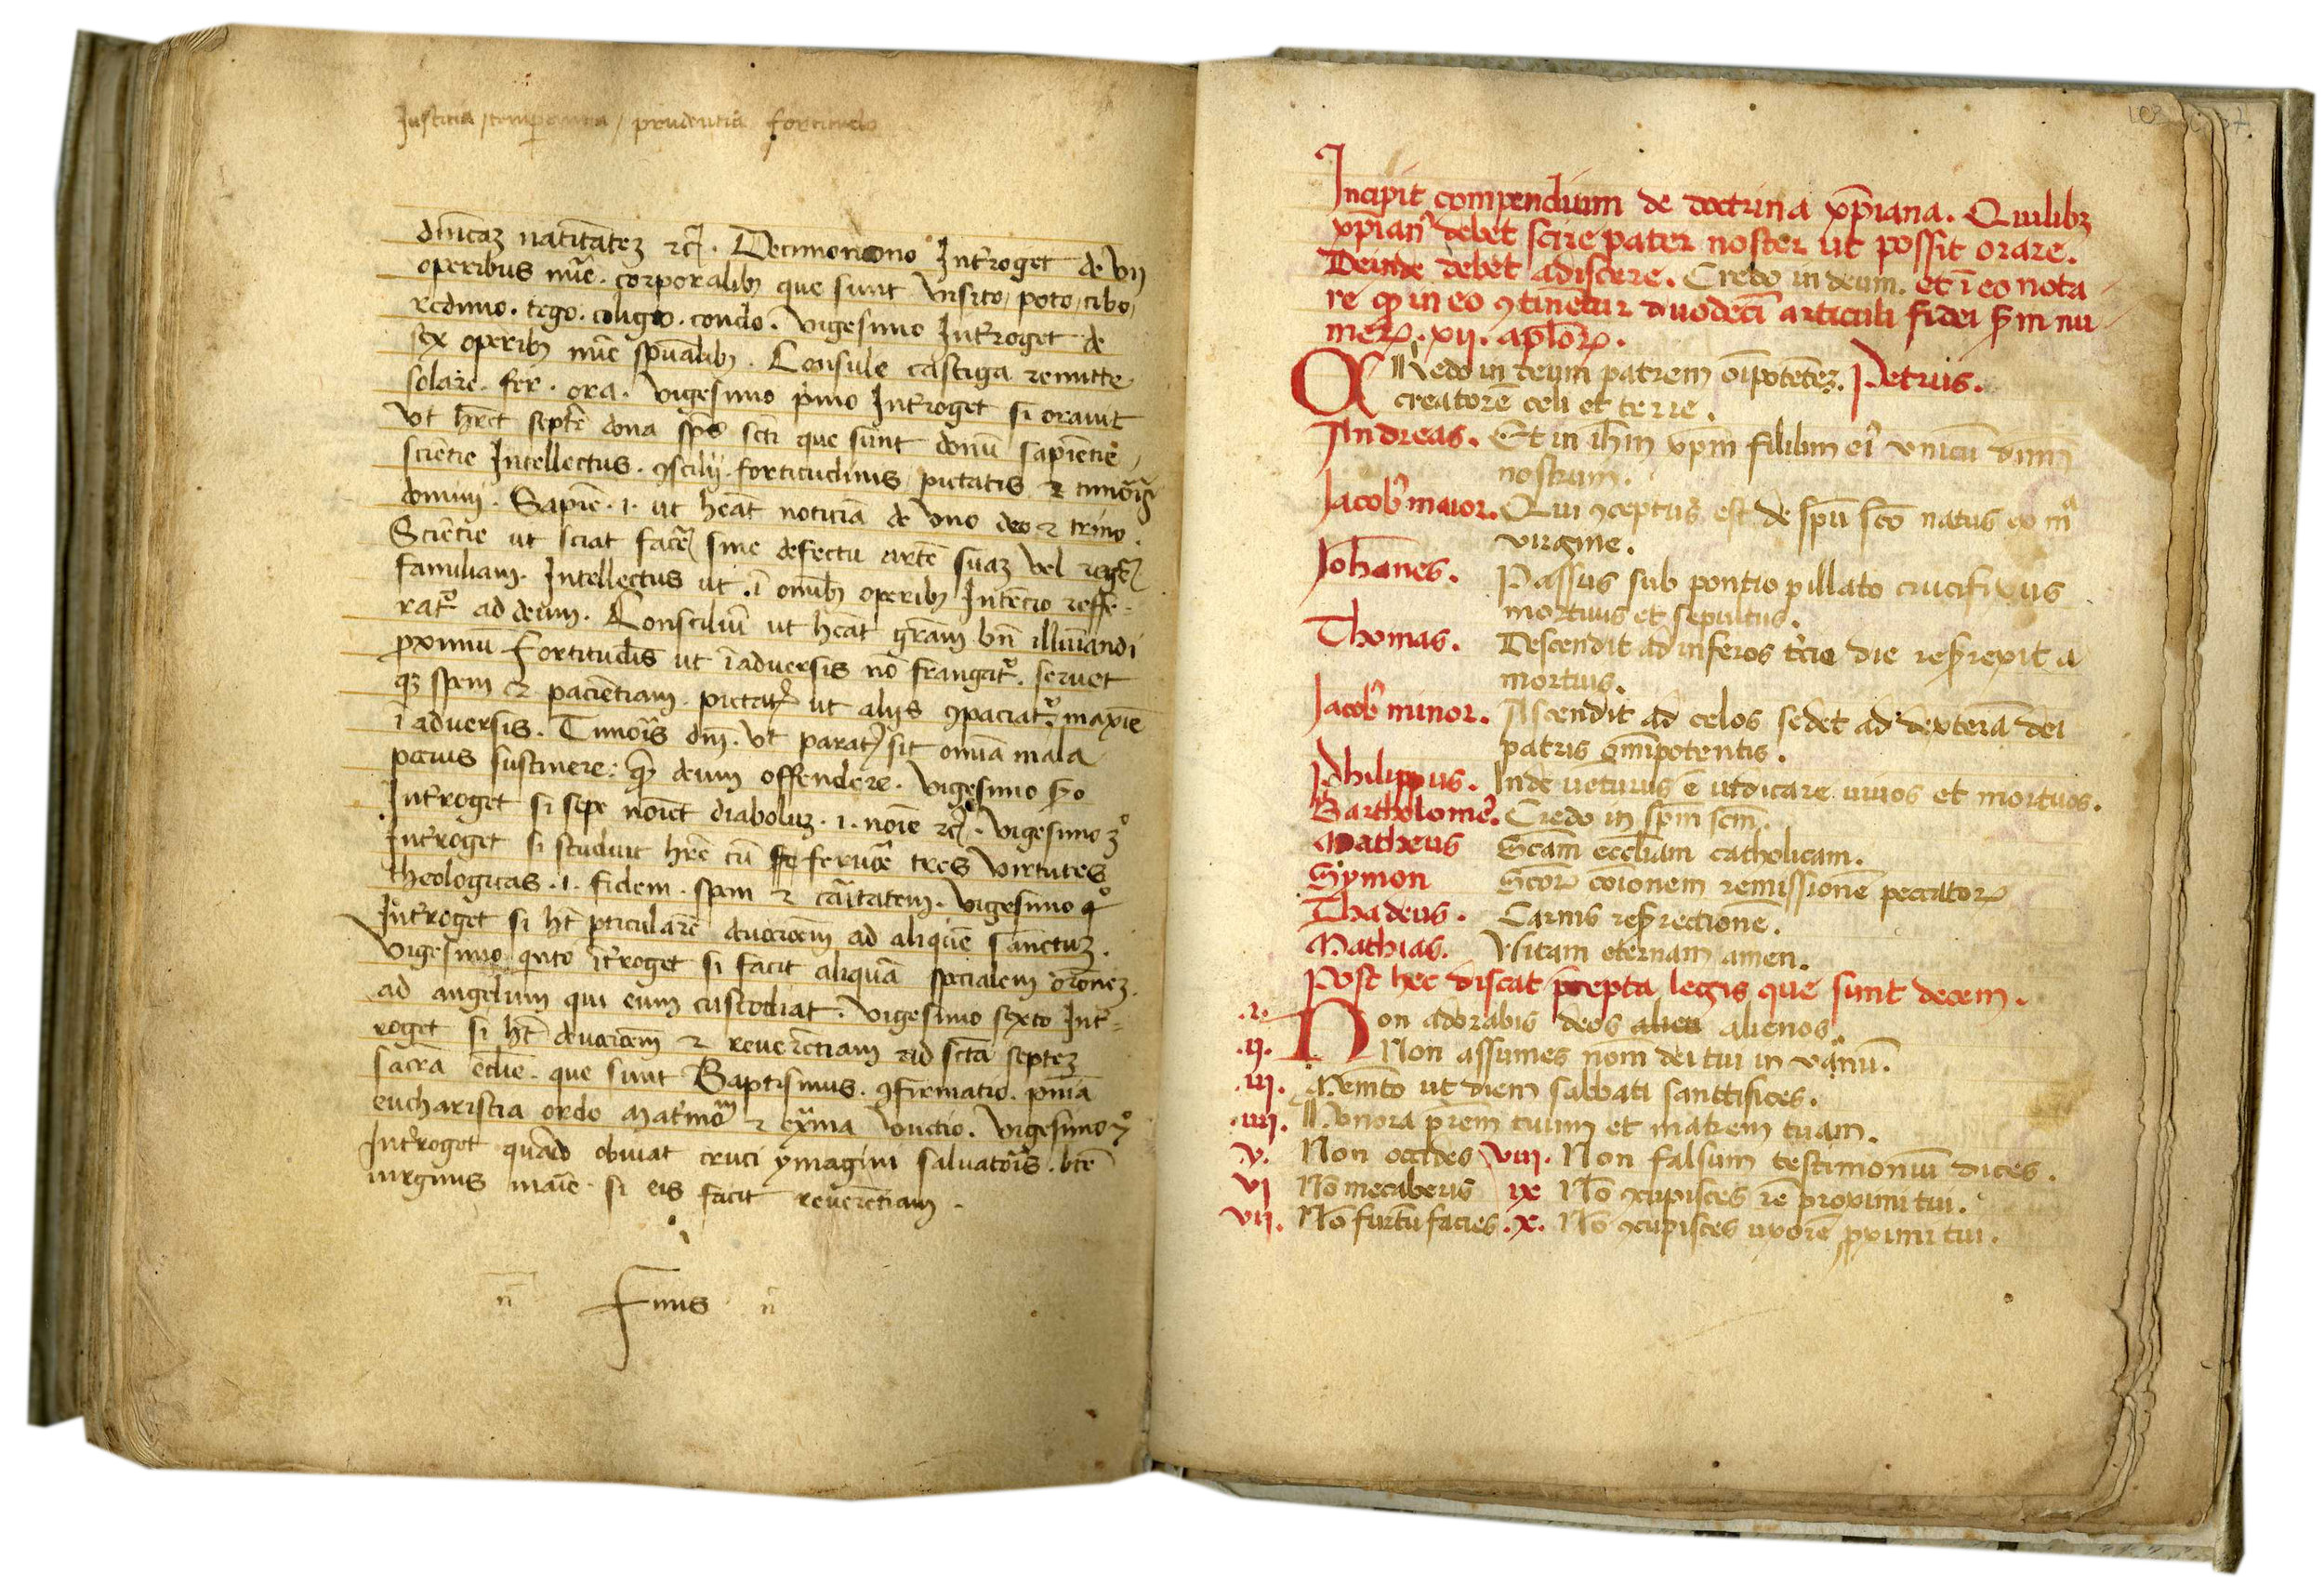 Iusticia / temperantia / prudentia fortitudo
diuicaȝ natiuitateȝ ⁊cͣ. Decimonono Introget de vij
operibus mīe. corporalibȝ que sunt visito / poto / cibo /
redimo. tego. coligo. condo. vigesimo Introget de
sex operibȝ mīe spūalibȝ. Consule castiga remitte
solare. fer. ora. vigesimo pͥmo Introget si orauit
vt hr̄et septē dona spūs scti que sunt donū sapiētie /
sciētie Intellectus. ꝯscilij. fortitudinis pietatis ⁊ timōis
domini. Sapiē. i. ut heāt noticiā de vno deo ⁊ trino.
Sciētie ut sciat facē sine defectu artē suaȝ vel regē
familiam. Intellectus ut ī oīnibȝ operibȝ Intēcio reffe-
rat᷑ ad deum. Consciliuī ut heāt grām bn̄ illuīandi
ꝓximū Fortitudīs ut īaduersis nō frangat᷑. seruet
qȝ spem ⁊ pacientiam. pietatꝭ ut alijs ꝯpaciat᷑. maxīe
ī aduersis. Timōis dm̄. vt paratꝰ sit omīa mala
pocius sustinere: qͣꝫ deum offendere. vigesimo sͦo
Introget si sepe noīet diaboluȝ. i. noīe ⁊cͣ. vigesimo 3º
Introget si studuit hr̄e cū feruōre tres virtutes
theologicas. i. fidem. spem ⁊ cāitatem. vigesimo qͦ
Introget si ht̄ ꝑticularē deuocōem ad aliquē sanctuȝ.
vigesimo qnto ītroget si facit aliquā specialem orōneȝ.
ad angelum qui eum custodiat. vigesimo sexto Int-
roget si ht̄ deuocōem ⁊ reuerētiam ad sctā septeȝ
sacrā ecclīe. que sunt Baptismus. ꝯfirmatio. pnīa
eucharistia ordo matrmoͫ ⁊ exͣma vnctio. vigesimo 7º
Introget quādo obuiat cruci ymagini saluatoris. btē
uirginis marīe. si eis facit reuerētiam.
n̄ Finis n̄
Incipit compendium de doctrina xp̄iana. Quilibȝ
xp̄ianꝰ debet scire pater noster ut possit orare.
Deinde debet adiscere. Credo in deum. et ī eo nota
re qͩ in eo ꝯtinetur duodecī articuli fidei sꝫm nu
meꝝ. xij. apl̄oꝝ.
CRedo in deum patrem oīpotēteȝ. Petrus.
creatorē celi et terre.
Andreas. Et in ih̄m xp̄m filium eiꝰ vnicū dn̄m
nostrum.
Iacobꝰ maior. Qui ꝯceptus est de spū sc̄o natus ex mͣ
virgine.
Iohanes. Passus sub pontio pillato crucifixus
mortuus et sepultus.
Thomas. Descendit ad inferos tͨcia die resͬrexit a
mortuis.
Iacobꝰ minor. Ascendit ad celos sedet ad dexterā dei
patris omīpotentis.
Philippus. Inde uēturus ē iudicare uiuos et mortuos.
Bartholomeꝰ. Credo in spm̄ scm̄.
Matheus Scām eccl̄iam catholicam.
Symon Scōꝝ coīonem remissionē peccatoꝝ
Thadeus. Carnis resͬrectionē.
Mathias. Vitam eternam amen.
Post hec discat p̄cepta legis que sunt decem.
.I. Non adorabis deos alien alienos.
.ij. Non assumes nom̄ dei tui in vanū.
.iij. Memēto ut diem sabbati sanctifices.
.iiij. Honora p̄rem tuum et matrem tuam.
v. Non occides viii. Non falsum testimoniū dices.
vi Nō mecaberis ix Nō ꝯcupisces rē proximi tui.
vii. Nō furtū facies. x. Nō ꝯcupisces uxorē ꝓximi tui.